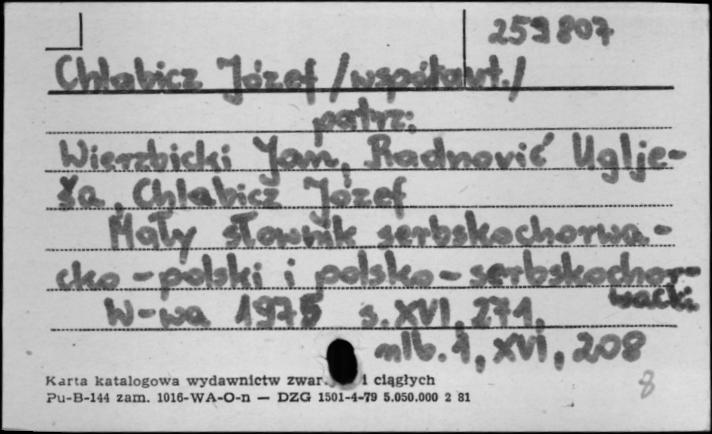 259807
Chlabicz Józef /współaut./
patrz:
Wierzbicki Jan, Radnović Uglje-
ša, Chlabicz Józef
Mały słownik serbskochorwa-
cko-polski i polsko-serbskochor-
wacki
W-wa 1975 s. XVI, 271,
nlb. 1, XVI, 208
8
Karta katalogowa wydawnictw zwar. i ciągłych
Pu-B-144 zam. 1016-WA-O-n — DZG 1501-4-79 5.050.000 2 81